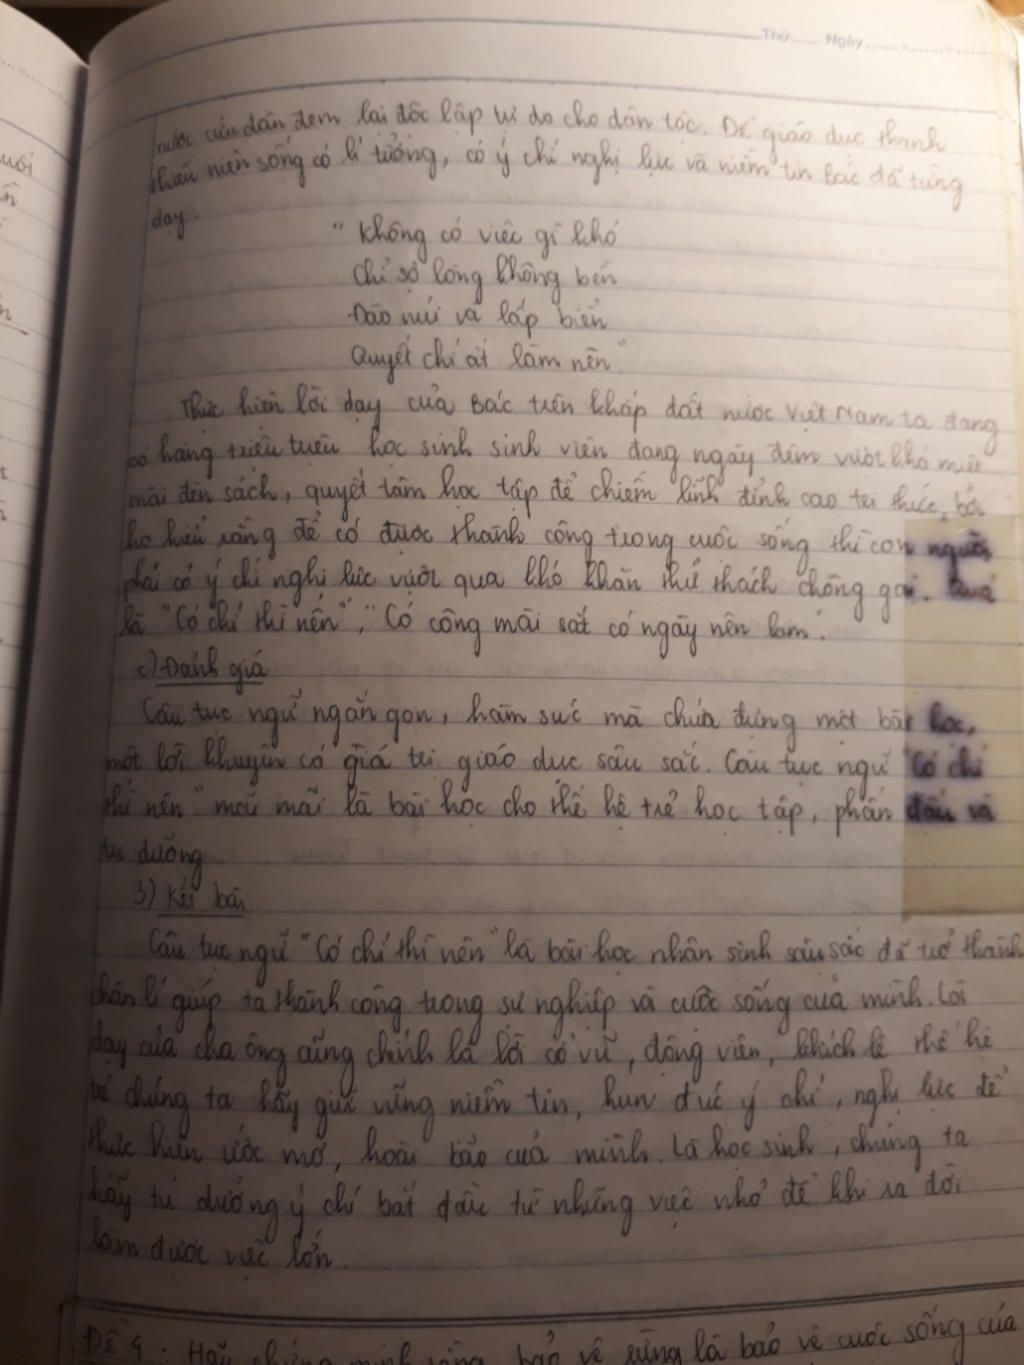 Thứ...... Ngày
nước cứu dân đem lại độc lập tự do cho dân tộc. Để giáo dục thanh
thiếu niên sống có lí tưởng, có ý chí nghị lực và niềm tin Bác đã từng
dạy.
"Không có việc gì khó
Chỉ sợ lòng không bền
Đào núi và lấp biển
Quyết chí ắt làm nên"
Thực hiện lời dạy của Bác trên khắp đất nước Việt Nam ta đang
có hàng triệu triệu học sinh sinh viên đang ngày đêm vượt khó miệt
mài đèn sách, quyết tâm học tập để chiếm lĩnh đỉnh cao tri thức, bởi
họ hiểu rằng để có được thành công trong cuộc sống thì con người
phải có ý chí nghị lực vượt qua khó khăn thử thách chông gai. Quả
là "Có chí thì nên", "Có công mài sắt có ngày nên kim".
c) Đánh giá
Câu tục ngữ ngắn gọn, hàm súc mà chứa đựng một bài học,
một lời khuyên có giá trị giáo dục sâu sắc. Câu tục ngữ "Có chí
thì nên" mãi mãi là bài học cho thế hệ trẻ học tập, phấn đấu và
tu dưỡng
3) Kết bài
Câu tục ngữ "Có chí thì nên" là bài học nhân sinh sâu sắc đã trở thành
chân lí giúp ta thành công trong sự nghiệp và cuộc sống của mình. Lời
dạy của cha ông cũng chính là lời cổ vũ, động viên, khích lệ thế hệ
trẻ chúng ta hãy giữ vững niềm tin, hun đúc ý chí, nghị lực để
thực hiện ước mơ, hoài bão của mình. Là học sinh, chúng ta
hãy tu dưỡng ý chí bắt đầu từ những việc nhỏ để khi ra đời
làm được việc lớn.
Đề 4: Hãy chứng minh rằng bảo vệ rừng là bảo vệ cuộc sống của